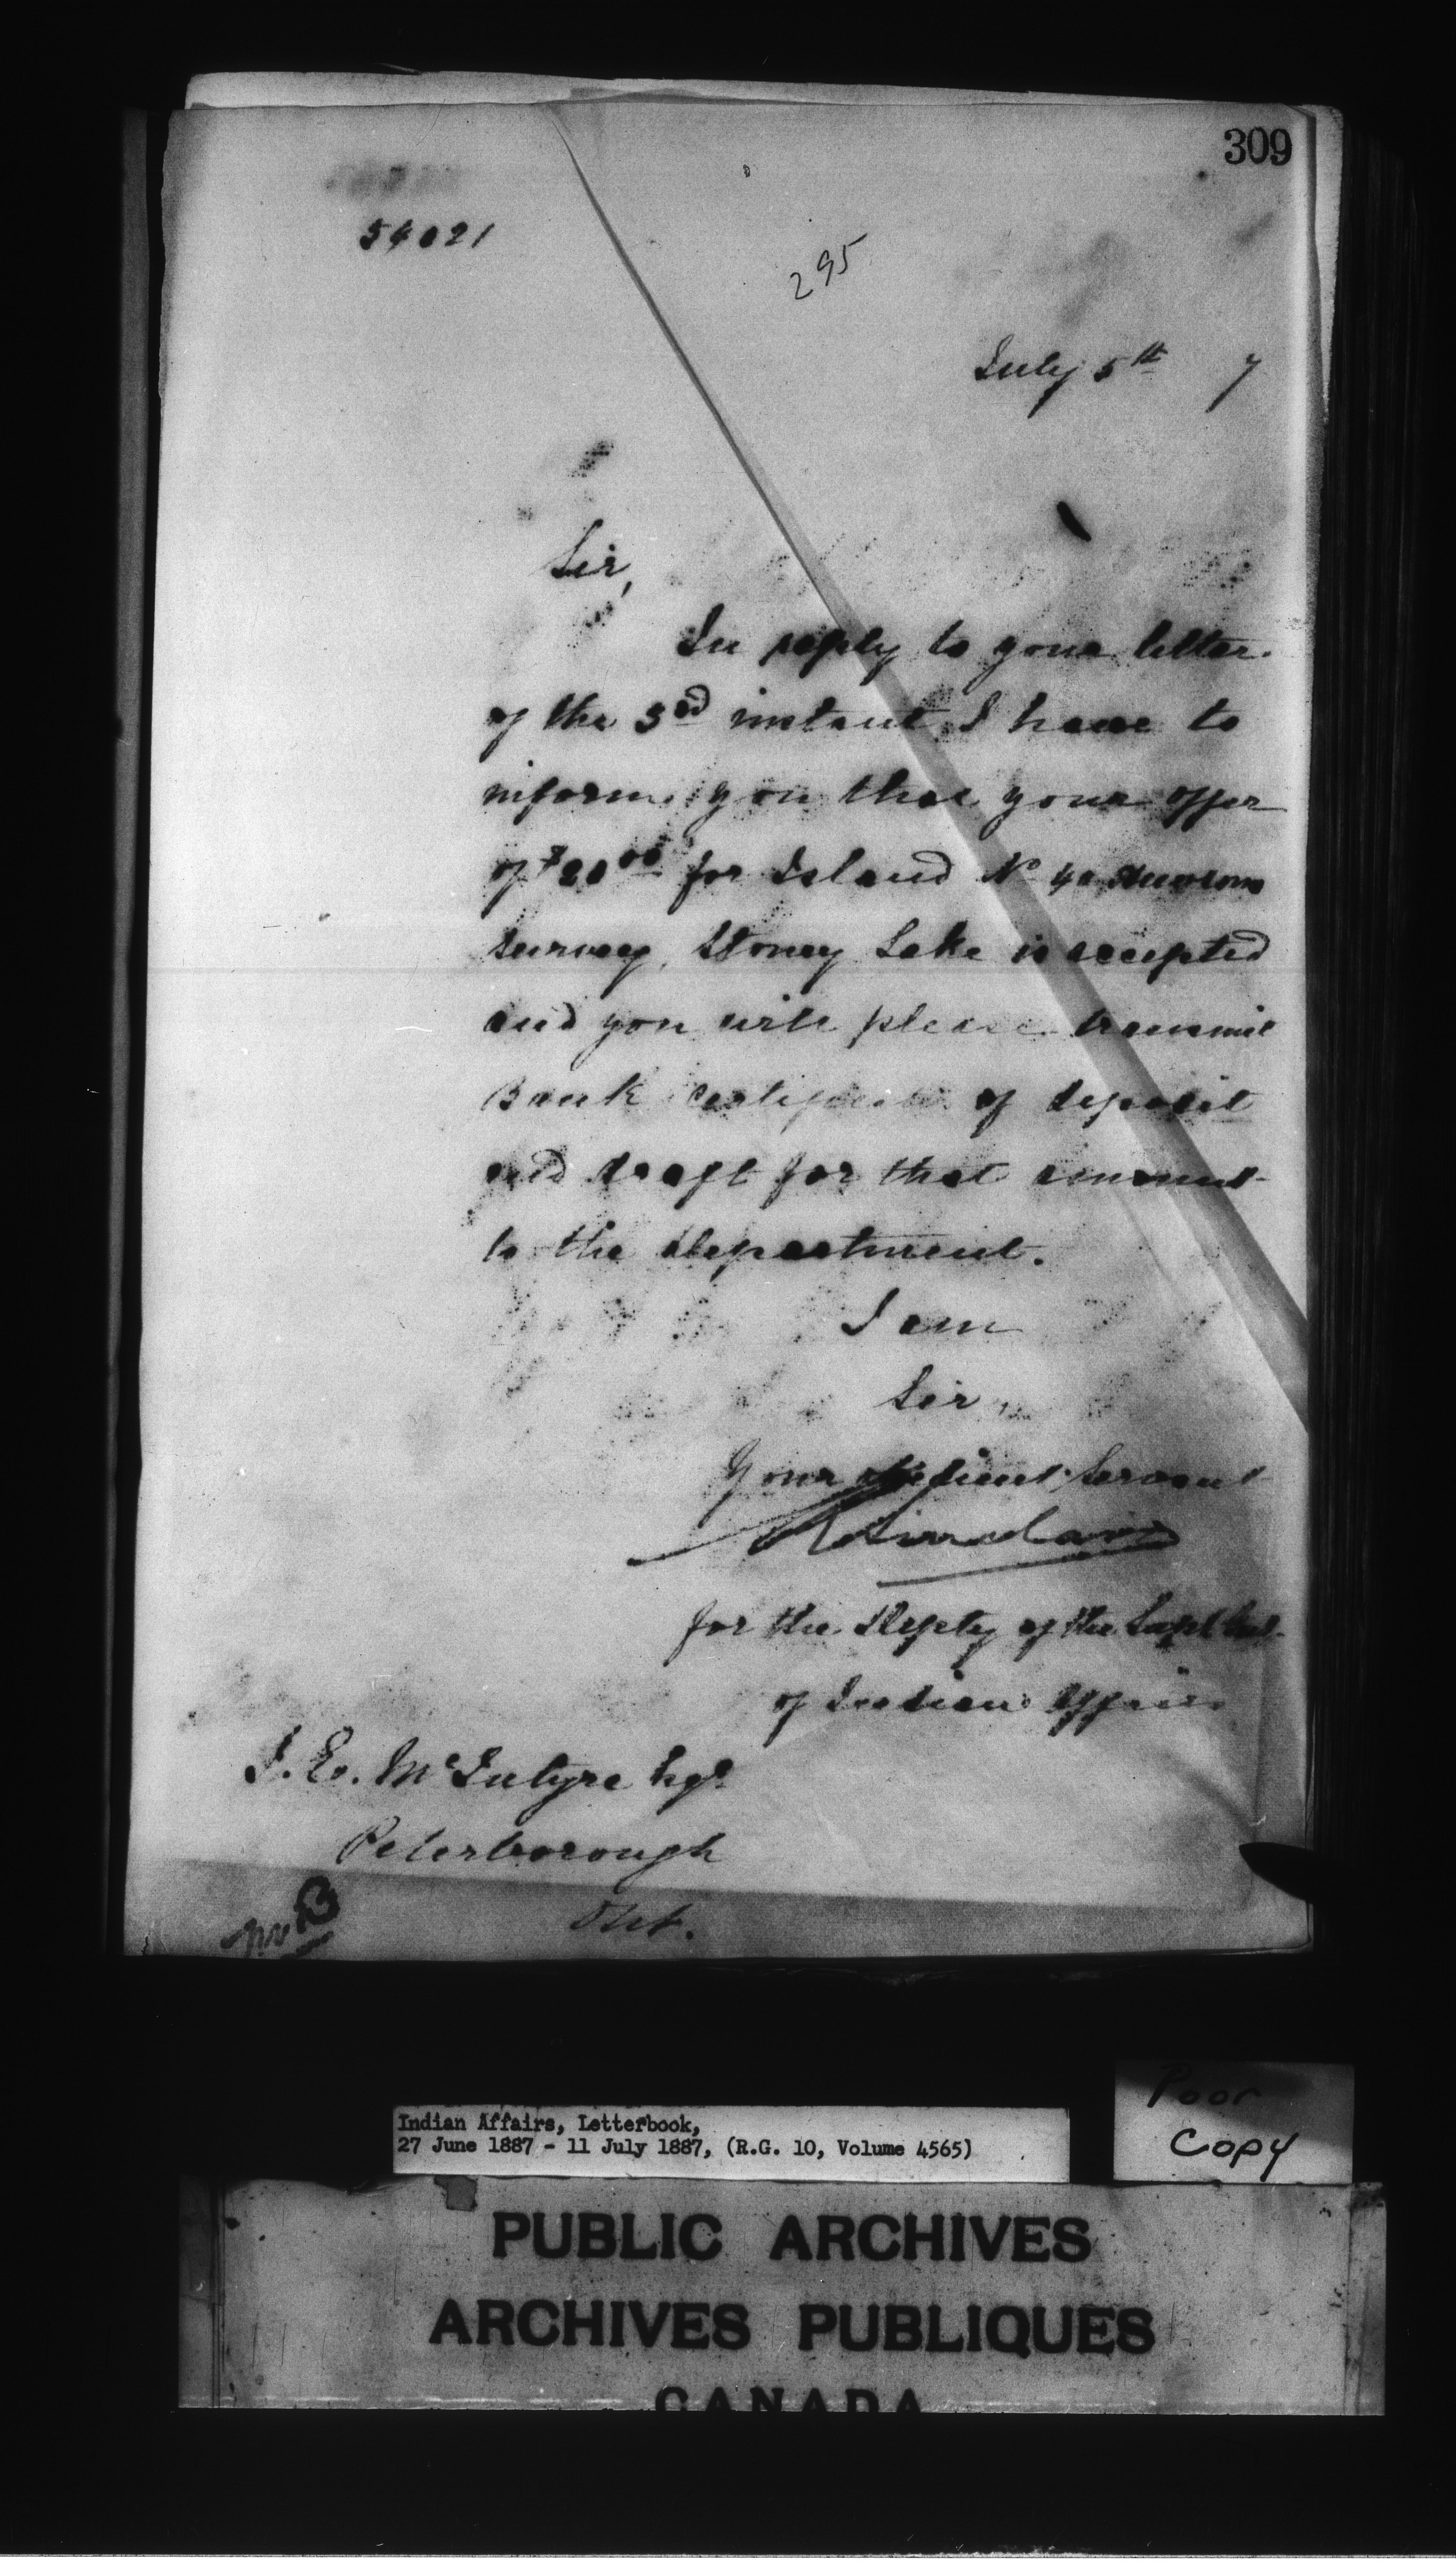 309
54021
295
July 5th 7
Sir,
In reply to your letter
of the 3rd instant, I have to
inform you that your offer
of $20.00 for Island No 40
Survey, Stoney Lake is accepted
and you will please transmit
Bank certificate of deposit
and draft for that amount
to the Department.
I am
Sir,
Your obedient Servant
R Sinclair
for the Depty of the Supt Genl
of Indian Affairs
J. E. McIntyre Esqr
Peterborough
Ont.
Poor
Copy
Indian Affairs, Letterbook,
27 June 1887 - 11 July 1887, (R.G. 10, Volume 4565)
PUBLIC ARCHIVES
ARCHIVES PUBLIQUES
CANADA